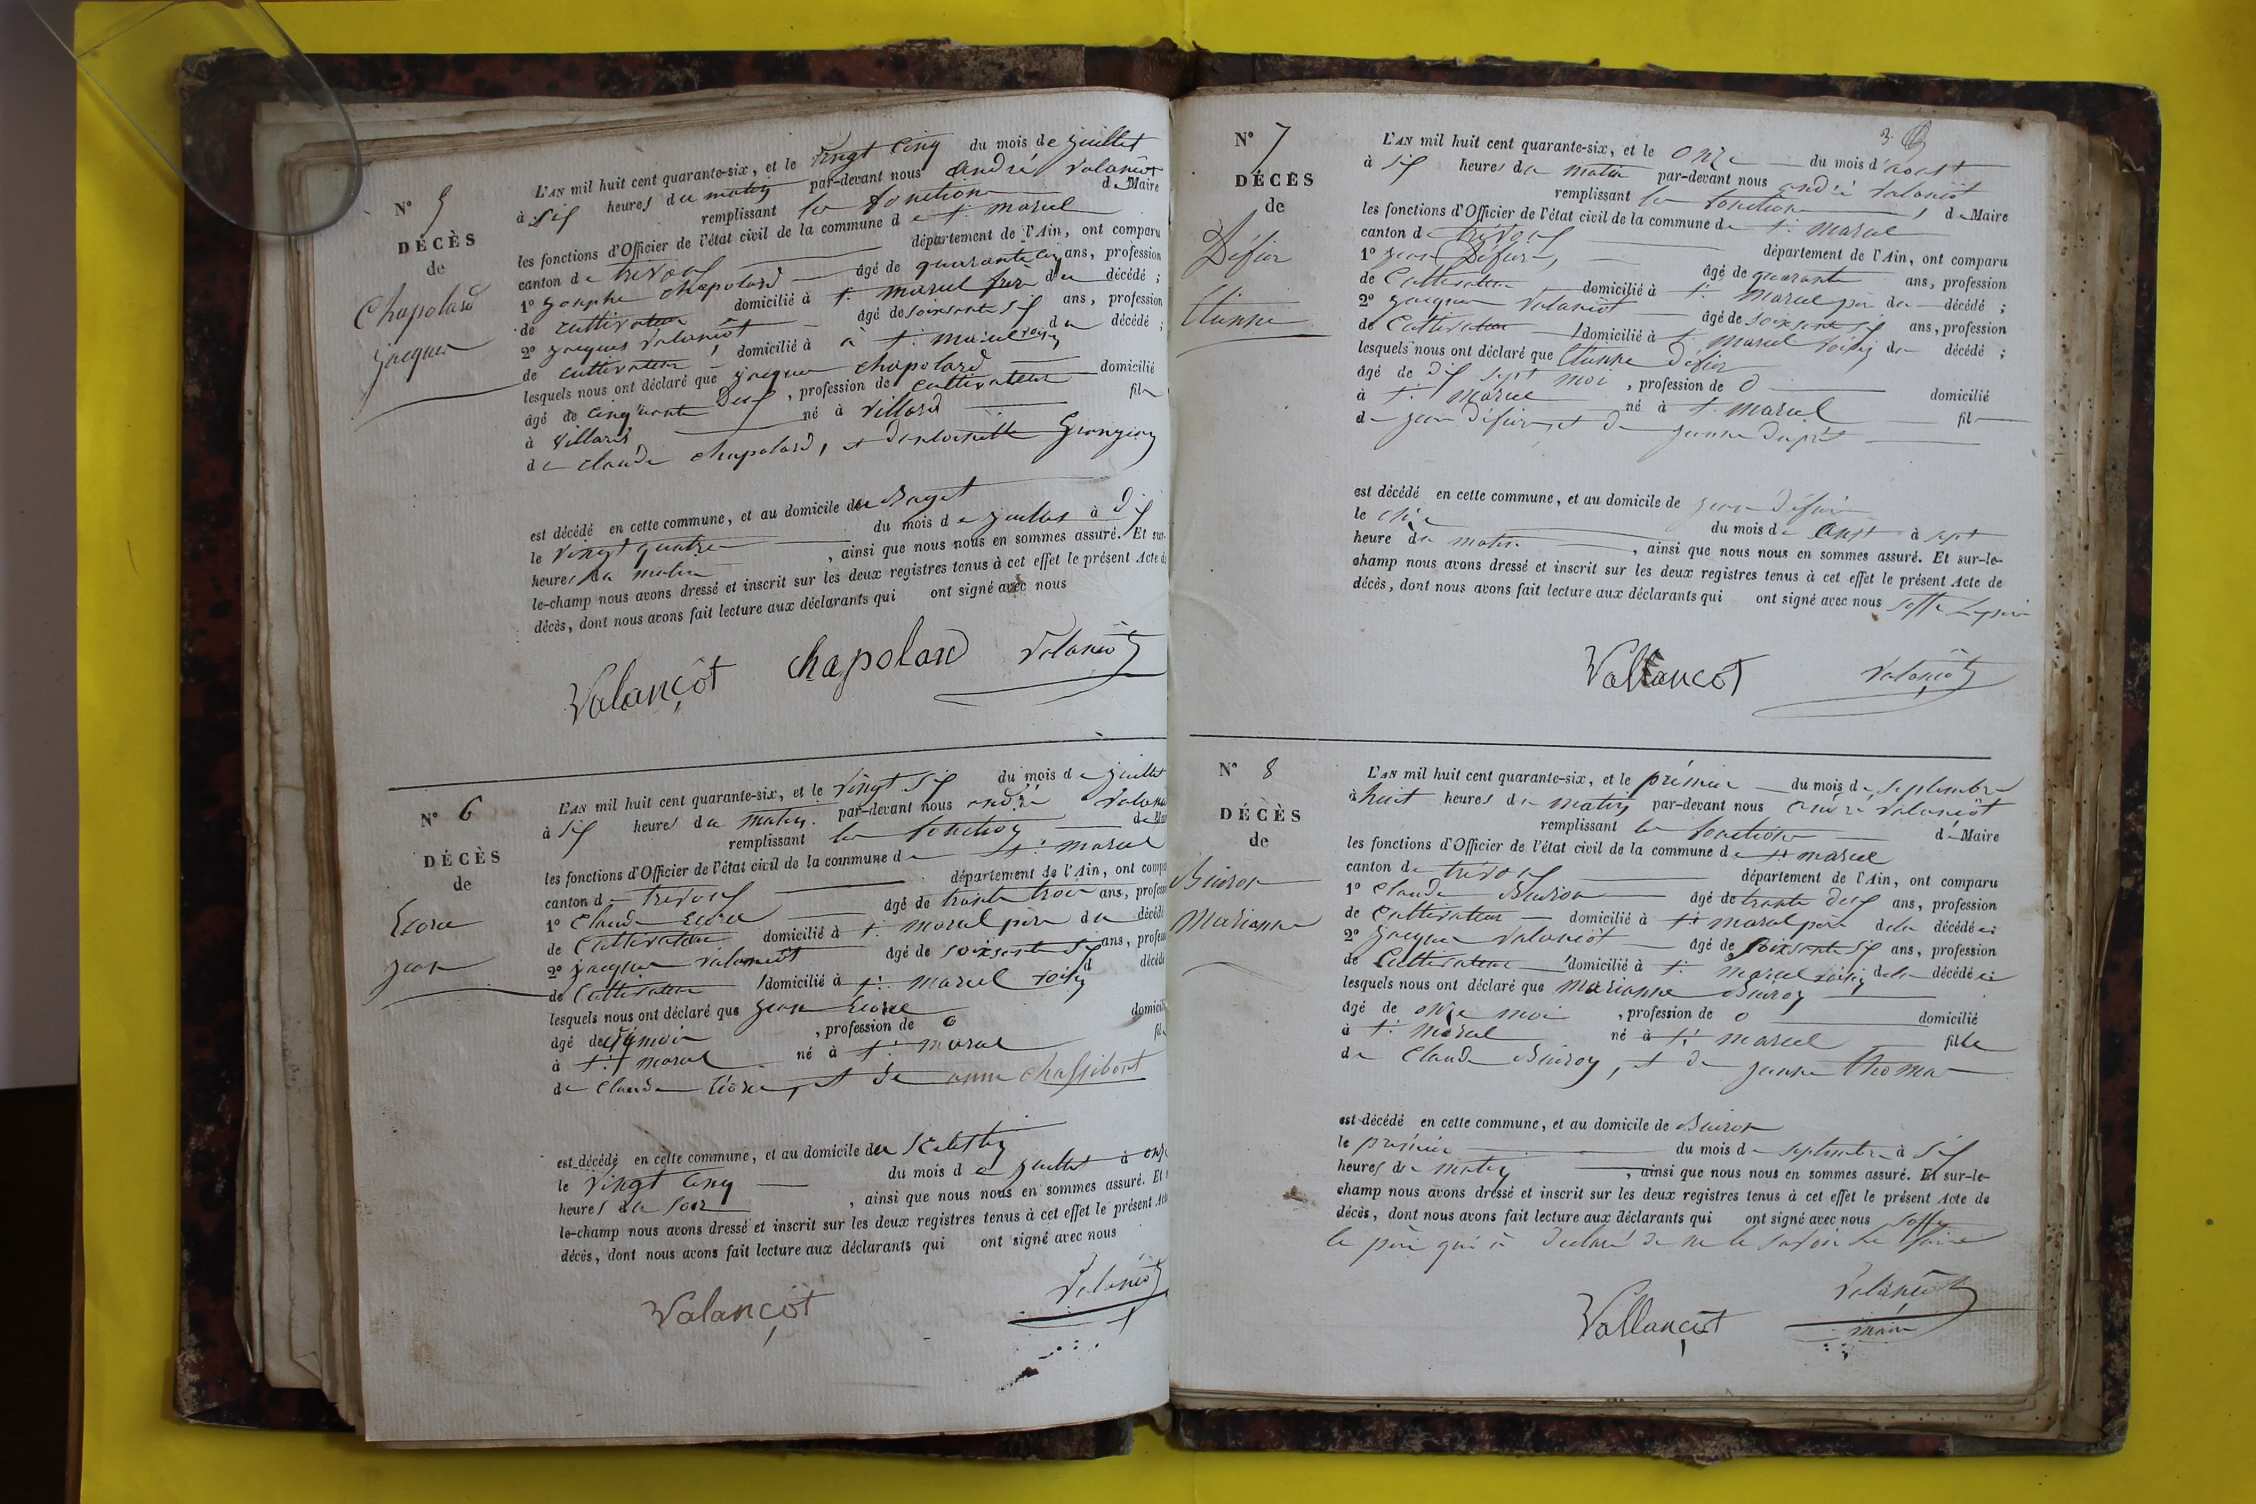 N° 5
DÉCÈS
de
Chapolard
jacques
L'AN mil huit cent quarante-six, et le vingt cinq du mois de juillet
à six heures du matin par-devant nous andré valançot
remplissant les fonctions de Maire
les fonctions d'Officier de l'état civil de la commune de St marcel
canton de trévoux département de l'Ain, ont comparu
1° josephe chapolard âgé de quarante cinq ans, profession
de cultivateur domicilié à St marcel frère du décédé ;
2° jacques valançot âgé de soixante six ans, profession
de cultivateur domicilié à à St marcel voisin du décédé ;
lesquels nous ont déclaré que jacques chapolard
âgé de cinquante deux, profession de cultivateur domicilié
à villars né à villard fils
de claude chapolard, et
est décédé en cette commune, et au domicile de
le vingt quatre du mois de juillet à dix
heures du matin, ainsi que nous nous en sommes assuré. Et sur-
le-champ nous avons dressé et inscrit sur les deux registres tenus à cet effet le présent Acte de
décès, dont nous avons fait lecture aux déclarants qui ont signé avec nous
Valançot chapolard Valançot
N° 6
DÉCÈS
de
Ecore
jean
L'AN mil huit cent quarante-six, et le vingt six du mois de juillet
à six heures du matin par-devant nous andré valançot
remplissant les fonction de Maire
les fonctions d'Officier de l'état civil de la commune de St marcel
canton de trévoux département de l'Ain, ont comparu
1° Claude Ecore âgé de trente trois ans, profession
de Cultivateur domicilié à St marcel père du décédé
2° jacques valançot âgé de soixante six ans, profession
de Cultivateur domicilié à St marcel voisin d décédé
lesquels nous ont déclaré que jean Ecore
âgé de mois, profession de 0 domicilié
à St marcel né à St marcel fils
de Claude Ecore, et de anne
est décédé en cette commune, et au domicile du
le vingt cinq du mois de juillet à onze
heures du soir, ainsi que nous nous en sommes assuré. Et
le-champ nous avons dressé et inscrit sur les deux registres tenus à cet effet le présent Acte
décès, dont nous avons fait lecture aux déclarants qui ont signé avec nous
Valançot Valançot
3
N° 7
DÉCÈS
de
Défior
Etienne
L'AN mil huit cent quarante-six, et le onze du mois d'aoust
à six heures du matin par-devant nous andré valançot
remplissant les fonctions de Maire
les fonctions d'Officier de l'état civil de la commune de St marcel
canton de trévoux département de l'Ain, ont comparu
1° jean Défior, âgé de quarante ans, profession
de Cultivateur domicilié à St marcel père du décédé ;
2° jacques valançot âgé de soixante six ans, profession
de Cultivateur domicilié à St marcel voisin du décédé ;
lesquels nous ont déclaré que Etienne défior
âgé de dix sept mois, profession de 0 domicilié
à St marcel né à St marcel fils
de jean défior, et de jeanne dupré
est décédé en cette commune, et au domicile de jean défior
le onze du mois de aoust à sept
heure du matin, ainsi que nous nous en sommes assuré. Et sur-le-
champ nous avons dressé et inscrit sur les deux registres tenus à cet effet le présent Acte de
décès, dont nous avons fait lecture aux déclarants qui ont signé avec nous
Vallançot Valançot
N° 8
DÉCÈS
de
Buiron
Marianne
L'AN mil huit cent quarante-six, et le prémier du mois de septembre
à huit heures du matin par-devant nous andré valançot
remplissant les fonctions de Maire
les fonctions d'Officier de l'état civil de la commune de St marcel
canton de trévoux département de l'Ain, ont comparu
1° Claude Buiron âgé de trente deux ans, profession
de Cultivateur domicilié à St marcel père de la décédée
2° jacques valançot âgé de soixante six ans, profession
de Cultivateur domicilié à St marcel voisin de la décédée
lesquels nous ont déclaré que Marianne Buiron
âgé de onze mois, profession de 0 domicilié
à St marcel né à St marcel fille
de Claude Buiron, et de jeanne thomas
est décédé en cette commune, et au domicile de Buiron
le prémier du mois de septembre à six
heures du matin, ainsi que nous nous en sommes assuré. Et sur-le-
champ nous avons dressé et inscrit sur les deux registres tenus à cet effet le présent Acte de
décès, dont nous avons fait lecture aux déclarants qui ont signé avec nous
le père qui a déclaré de ne le savoir faire
Vallançot Valançot
maire